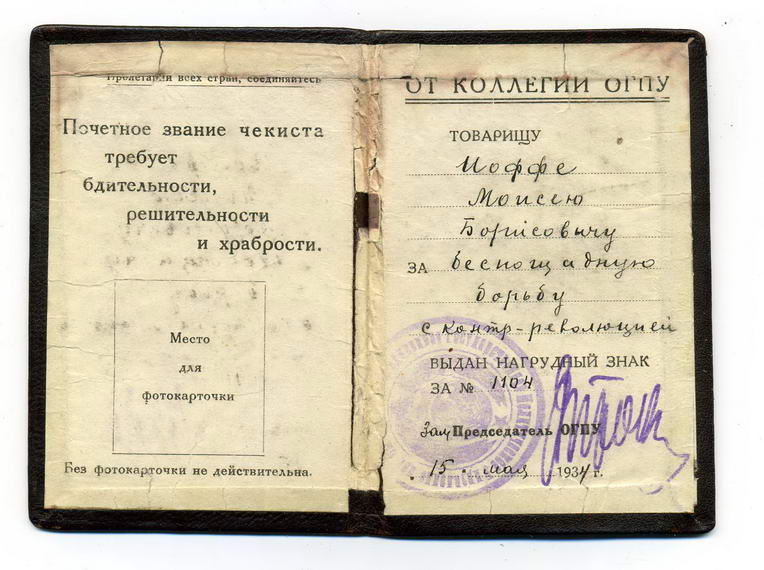 Пролетарии всех стран, соединяйтесь
Почетное звание чекиста
требует
бдительности,
решительности
и храбрости.
Место
для
фотокарточки
Без фотокарточки не действительна.
ОТ КОЛЛЕГИИ ОГПУ
ТОВАРИЩУ
Иоффе
Моисею
Борисовичу
ЗА беспощадную
борьбу
с контр-революцией
ВЫДАН НАГРУДНЫЙ ЗНАК
ЗА № 1104
Зам Председатель ОГПУ
15. мая 1934 г.